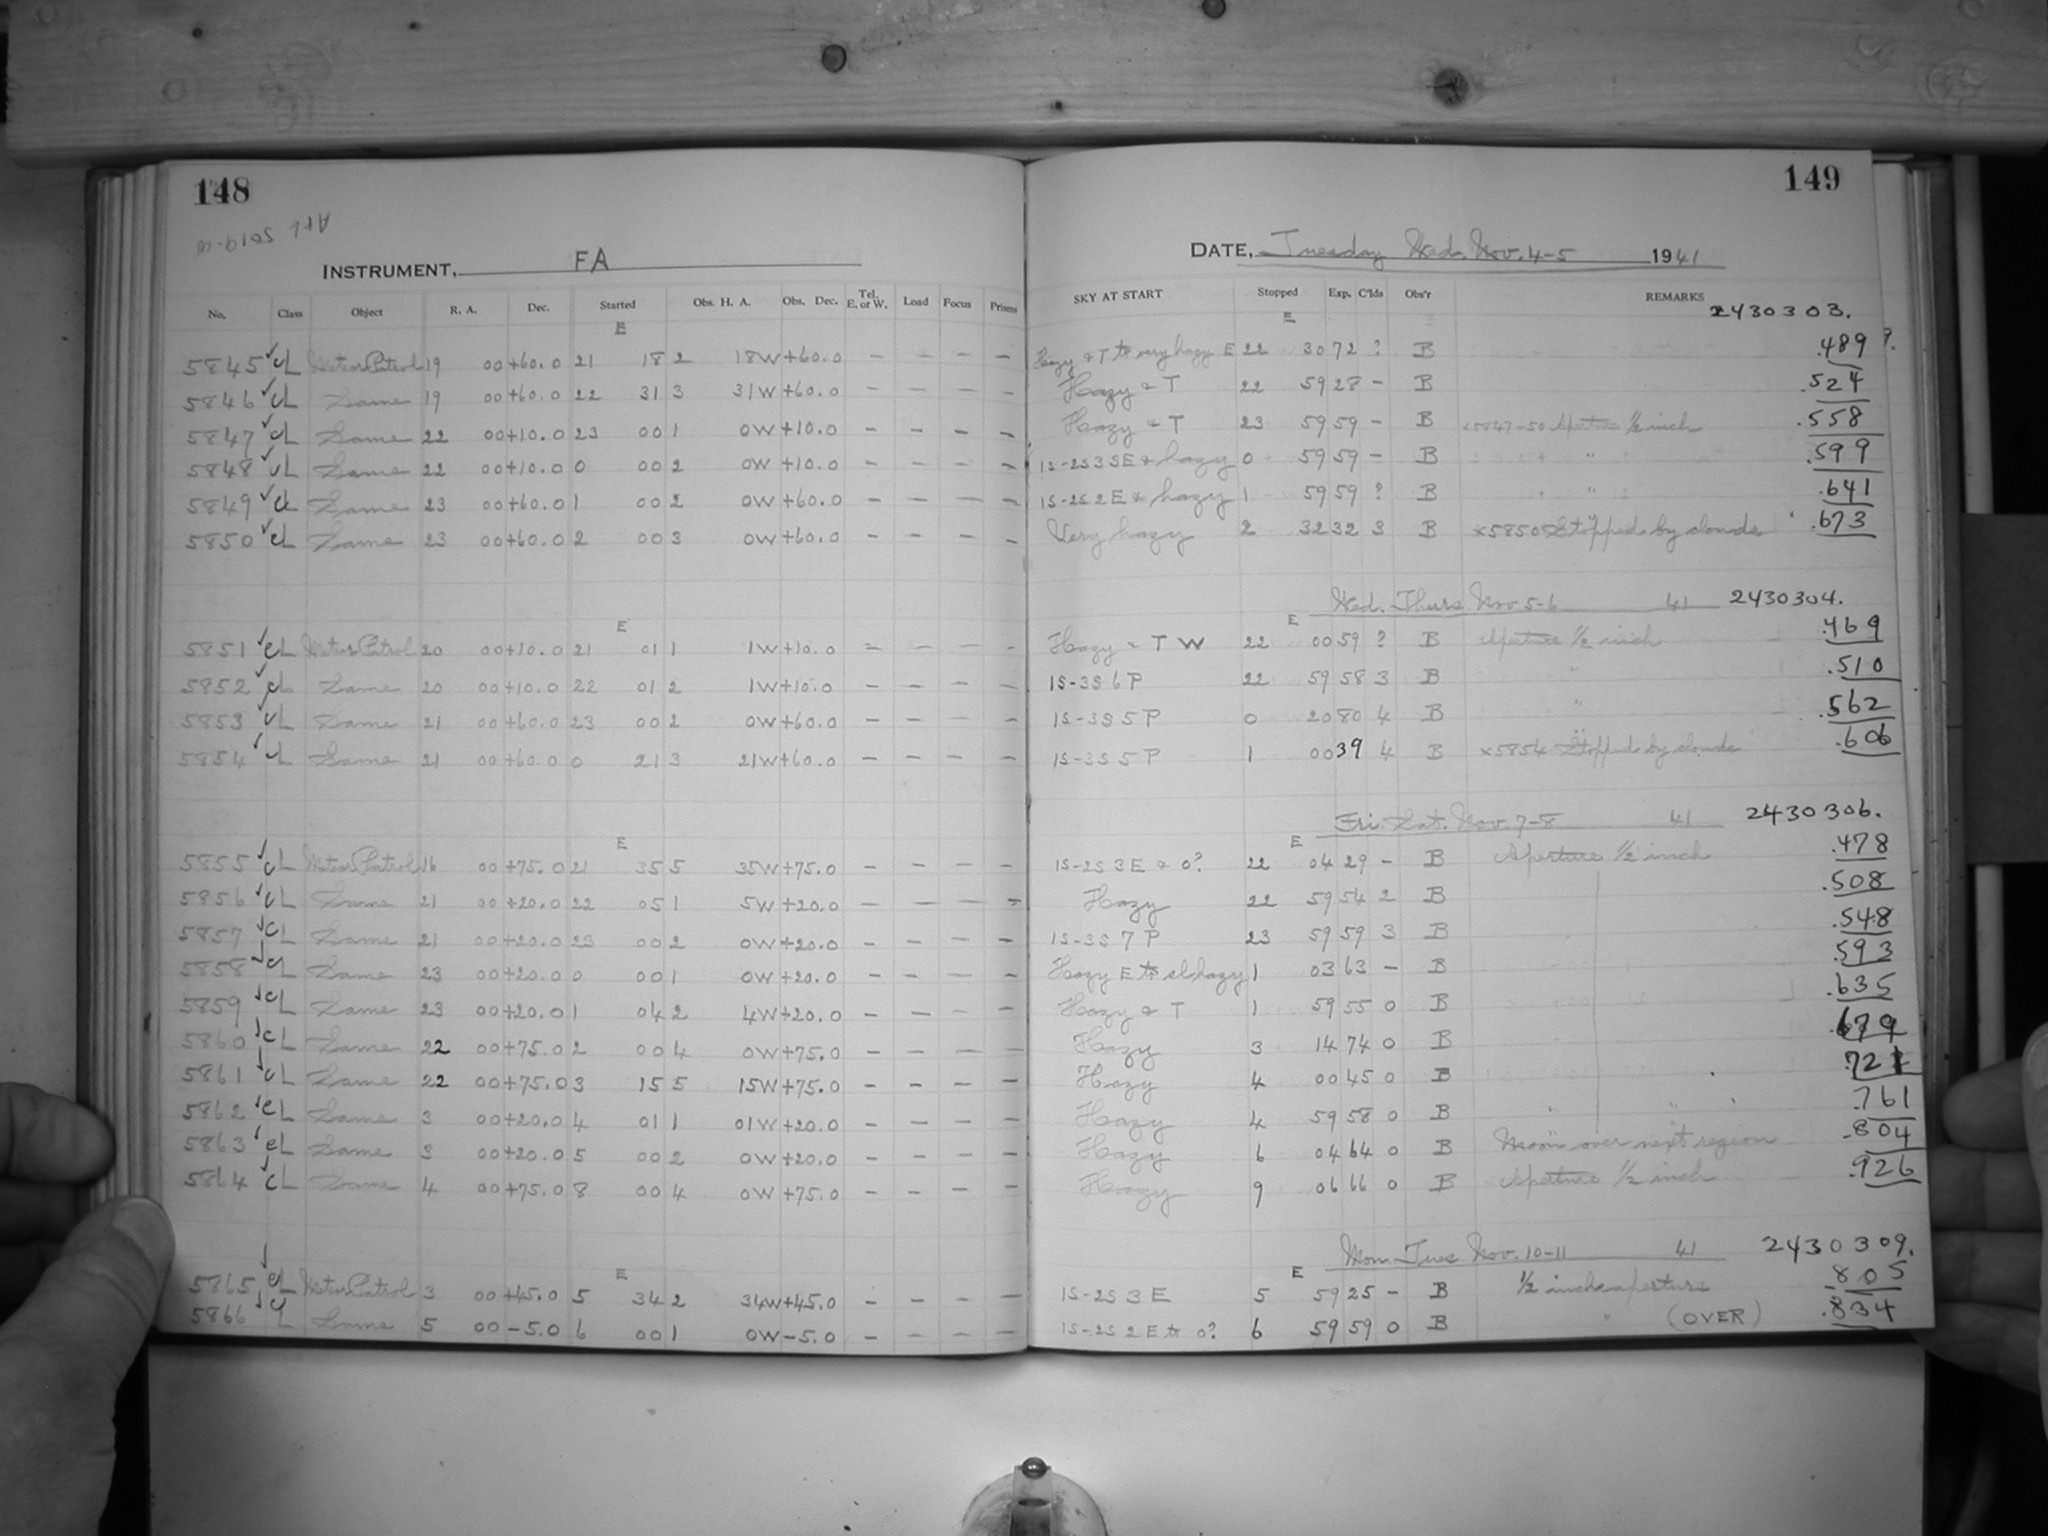 148 149
INSTRUMENT, FA DATE, Tuesday Wed. Nov. 4-5 1941
No. Class Object R. A. Dec. Started Obs. H. A. Obs. Dec. Tel. E. or W. Load Focus Prisms SKY AT START Stopped Exp. C'lds Obs'r REMARKS
E E 2430303.
5845 ✓ cL Meteor Patrol 19 00 +60.0 21 18 2 18W +60.0 – – – – Hazy & T to very hazy E 22 30 72 ? B .489 ?.
5846 ✓ cL Same 19 00 +60.0 22 31 3 31W +60.0 – – – – Hazy & T 22 59 28 – B .524
5847 ✓ cL Same 22 00 +10.0 23 00 1 0W +10.0 – – – – Hazy & T 23 59 59 – B x5847-50 Aperture 1/2 inch .558
5848 ✓ cL Same 22 00 +10.0 0 00 2 0W +10.0 – – – – 1S-2S 3 SE & hazy 0 59 59 – B " .599
5849 ✓ cL Same 23 00 +60.0 1 00 2 0W +60.0 – – – – 1S-2S 2 E & hazy 1 59 59 ? B " .641
5850 ✓ cL Same 23 00 +60.0 2 00 3 0W +60.0 – – – – Very hazy 2 32 32 3 B x5850 Stopped by clouds .673
Wed. Thurs. Nov. 5-6 41 2430304.
E E
5851 ✓ cL Meteor Patrol 20 00 +10.0 21 01 1 1W +10.0 – – – – Hazy & T W 22 00 59 ? B Aperture 1/2 inch .469
5852 ✓ cL Same 20 00 +10.0 22 01 2 1W +10.0 – – – – 1S-3S 6 P 22 59 58 3 B " .510
5853 ✓ cL Same 21 00 +60.0 23 00 2 0W +60.0 – – – – 1S-3S 5 P 0 20 80 4 B " .562
5854 ✓ cL Same 21 00 +60.0 0 21 3 21W +60.0 – – – – 1S-3S 5 P 1 00 39 4 B x5854 Stopped by clouds .606
Fri. Sat. Nov. 7-8 41 2430306.
E E
5855 ✓ cL Meteor Patrol 16 00 +75.0 21 35 5 35W +75.0 – – – – 1S-2S 3 E & 0? 22 04 29 – B Aperture 1/2 inch .478
5856 ✓ cL Same 21 00 +20.0 22 05 1 5W +20.0 – – – – Hazy 22 59 54 2 B .508
5857 ✓ cL Same 21 00 +20.0 23 00 2 0W +20.0 – – – – 1S-3S 7 P 23 59 59 3 B .548
5858 ✓ cL Same 23 00 +20.0 0 00 1 0W +20.0 – – – – Hazy E to sl hazy 1 03 63 – B .593
5859 ✓ cL Same 23 00 +20.0 1 04 2 4W +20.0 – – – – Hazy & T 1 59 55 0 B .635
5860 ✓ cL Same 22 00 +75.0 2 00 4 0W +75.0 – – – – Hazy 3 14 74 0 B .679
5861 ✓ cL Same 22 00 +75.0 3 15 5 15W +75.0 – – – – Hazy 4 00 45 0 B .721
5862 ✓ cL Same 3 00 +20.0 4 01 1 01W +20.0 – – – – Hazy 4 59 58 0 B " " .761
5863 ✓ cL Same 3 00 +20.0 5 00 2 0W +20.0 – – – – Hazy 6 04 64 0 B Moon over next region .804
5864 ✓ cL Same 4 00 +75.0 8 00 4 0W +75.0 – – – – Hazy 9 06 66 0 B Aperture 1/2 inch .926
Mon. Tues. Nov. 10-11 41 2430309.
E E
5865 ✓ cL Meteor Patrol 3 00 +45.0 5 34 2 34W +45.0 – – – – 1S-2S 3 E 5 59 25 – B 1/2 inch aperture .805
5866 ✓ cL Same 5 00 -5.0 6 00 1 0W -5.0 – – – – 1S-2S 2 E to 0? 6 59 59 0 B (OVER) .834